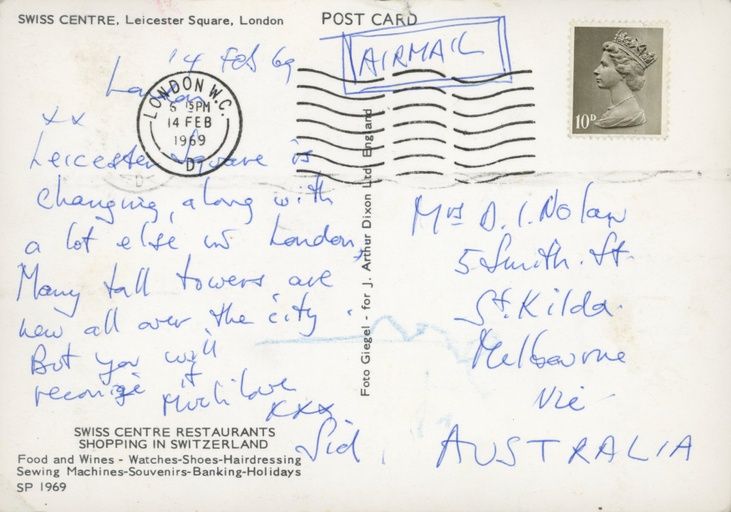 SWISS CENTRE, Leicester Square, London
POST CARD
AIRMAIL
14 Feb 69
London
LONDON W.C.
6 15PM
14 FEB
1969
D
xx
Leicester Square is
changing, along with
a lot else in London,
Many tall towers are
new all over the city.
But you will
recognise it
Much love
xxx
Sid.
10D
Mrs D. I. Nolan
5 Smith. St.
St. Kilda.
Melbourne
Vic
AUSTRALIA
Foto Giegel - for J. Arthur Dixon Ltd. England
SWISS CENTRE RESTAURANTS
SHOPPING IN SWITZERLAND
Food and Wines - Watches-Shoes-Hairdressing
Sewing Machines-Souvenirs-Banking-Holidays
SP 1969